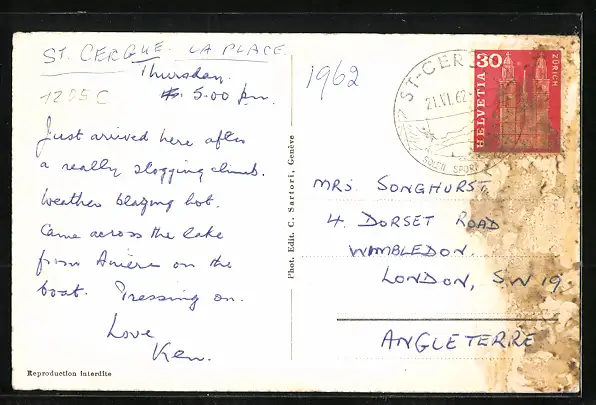 ST. CERGUE. LA PLACE.
Thursday.
5.00 pm.
1295 C
Just arrived here after
a really slogging climb.
Weather blazing hot.
Came across the lake
from Anière on the
boat. Pressing on.
Love
Ken.
Reproduction interdite
Phot. Edit. C. Sartori, Genève
1962
ST-CER
21.VI.62
SOLEIL SPORT
30
HELVETIA
ZÜRICH
MRS SONGHURST,
4. DORSET ROAD
WIMBLEDON.
LONDON, S.W 19.
ANGLETERRE